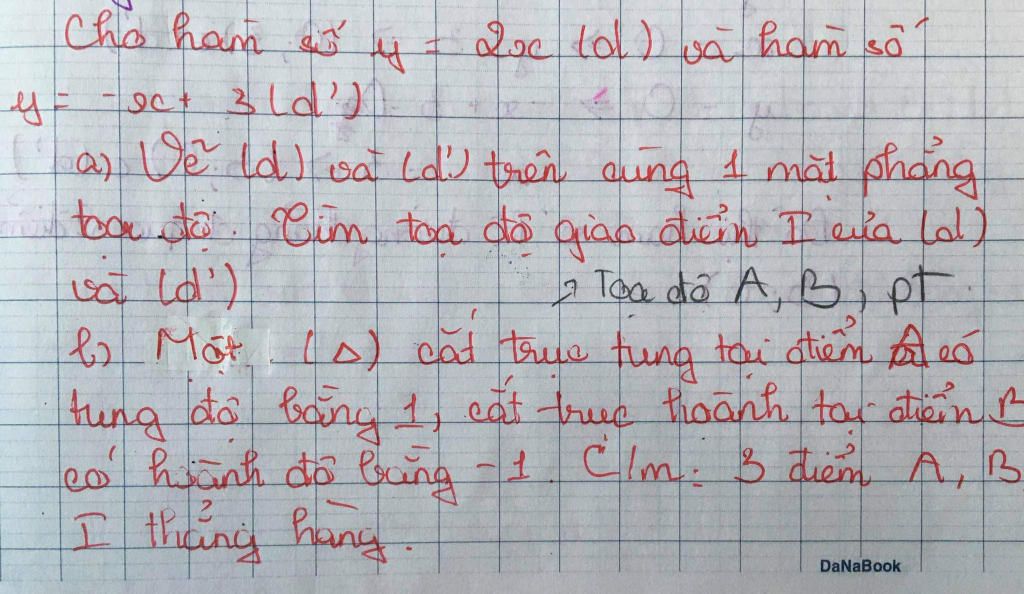 Cho hàm số y = 2x (d) và hàm số
y = -x + 3 (d')
a) Vẽ (d) và (d') trên cùng 1 mặt phẳng
toạ độ. Tìm toạ độ giao điểm I của (d)
và (d')
→ Toạ độ A, B, pt
b) Một (Δ) cắt trục tung tại điểm A có
tung độ bằng 1, cắt trục hoành tại điểm B
có hoành độ bằng -1. C/m: 3 điểm A, B
I thẳng hàng.
DaNaBook